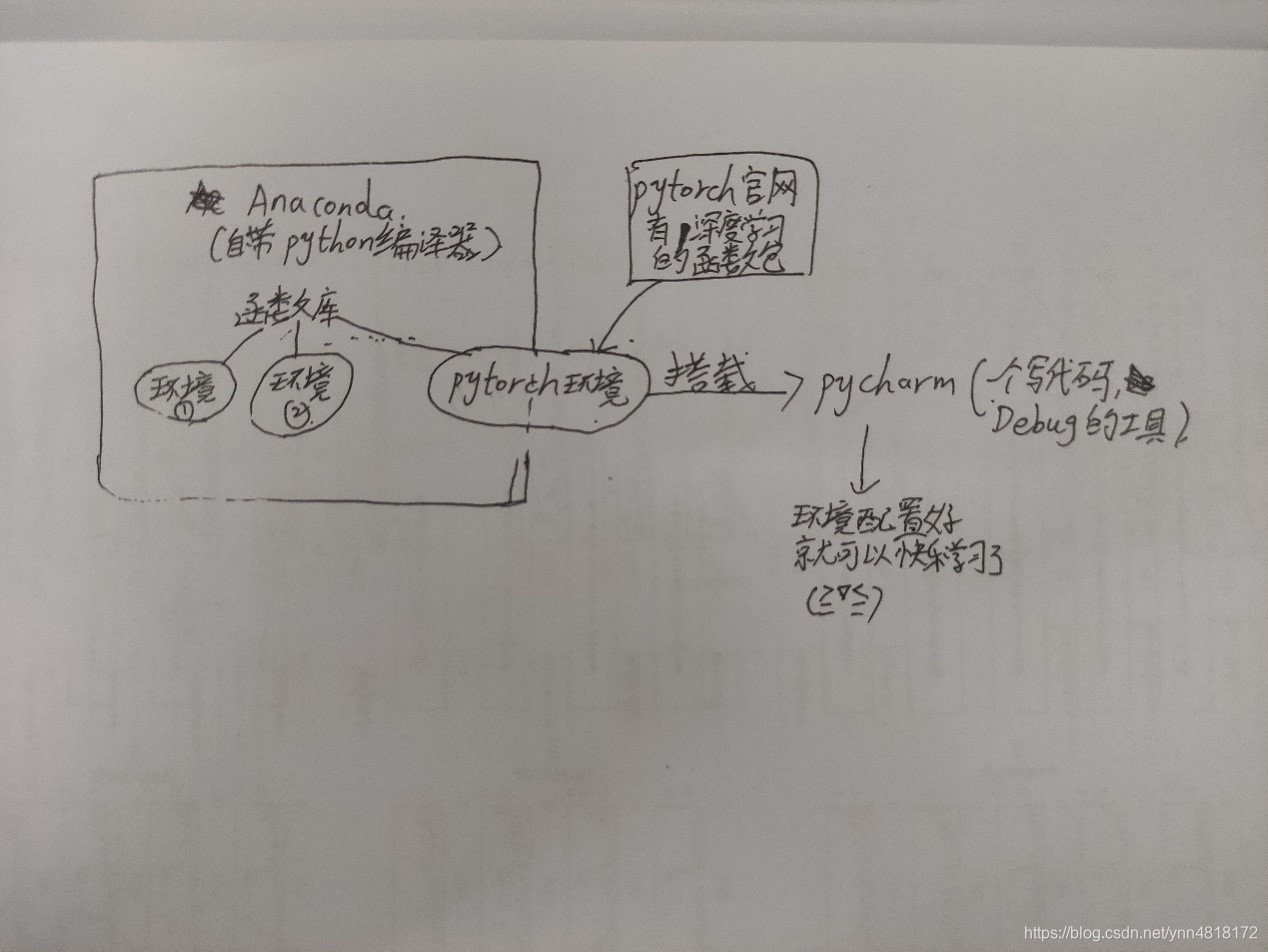 Anaconda.
(自带python编译器)
函数库
环境
①
环境
②
pytorch官网
有深度学习
的函数包
pytorch环境
搭载
pycharm (一个写代码,
Debug的工具)
环境配置好
就可以快乐学习了
(≧∇≦)
https://blog.csdn.net/ynn4818172